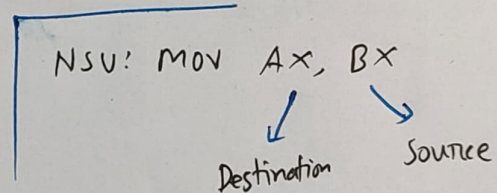 NSU: MOV AX, BX
Destination Source